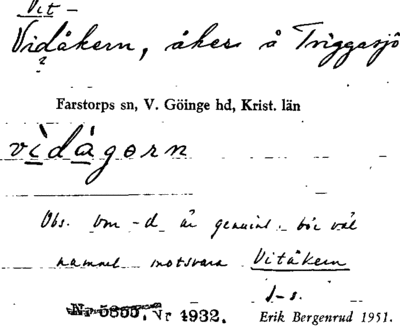 Vit-
Vidåkern, åker å Triggasjö
?
Farstorps sn, V. Göinge hd, Krist. län
vìdàgərn
Obs. om -d är genuint, bör väl
namnet motsvara Vitåkern
Nr 5855. Nr 4932. Erik Bergenrud 1951.